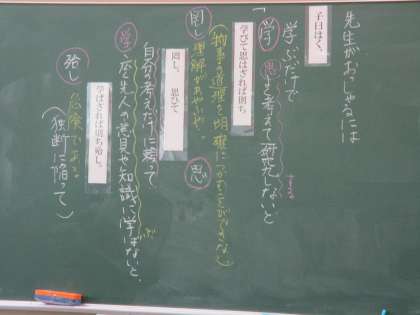 先生がおっしゃるには
子曰はく、
学ぶだけで
「学 思 よく考えて研究しないと
する
学びて思はざれば則ち
(物事の道理を明確につかむことができない)
罔し 理解があやふや。 思
罔し。 思ひて
自分の考えだけに頼って
学 先人の意見や知識に学ばないと、
ぶ
学ばざれば則ち殆し。
殆し 危険である。
(独断に陥って)